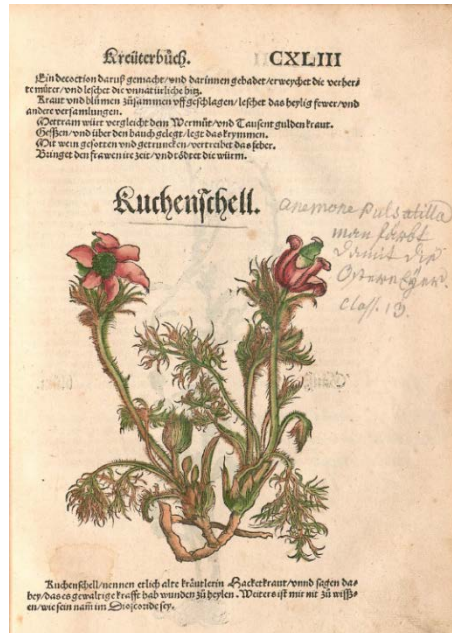 Kreüterbůch. CXLIII
Ein decoction daruß gemacht/vnd darinnen gebadet/erweychet die verher-
te můter/vnd leschet die vnnatürliche hitz.
Kraut vnd blůmen zůsammen vffgeschlagen/leschet das heylig fewer/vnd
andere versamlungen.
Mettram würt vergleicht dem Wermůt/vnd Tausent gulden kraut.
Gessen/vnd über den bauch gelegt/legt das krymmen.
Mit wein gesotten vnd getruncken/vertreibet das feber.
Bringet den frawen ire zeit/vnd tödtet die würm.
Kuchenschell.
Anemone Pulsatilla
man färbt
damit die
Ostereyer.
Class. 13.
Kuchenschell/nennen etlich alte kräutlerin Hacketkraut/vnnd sagen da-
bey/das es gewaltige krafft hab wunden zů heylen. Weiters ist mir nit zů wiss-
en/wie sein nam im Dioscoride sey.